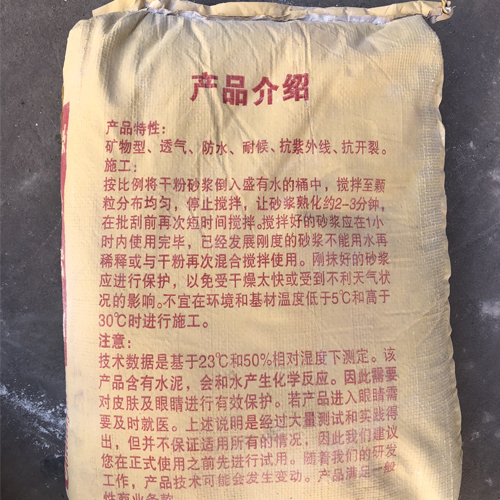 产品介绍
产品特性：
矿物型、透气、防水、耐候、抗紫外线、抗开裂。
施工：
按比例将干粉砂浆倒入盛有水的桶中，搅拌至颗
粒分布均匀，停止搅拌，让砂浆熟化约2-3分钟，
在批刮前再次短时间搅拌。搅拌好的砂浆应在1小
时内使用完毕，已经发展刚度的砂浆不能用水再
稀释或与干粉再次混合搅拌使用。刚抹好的砂浆
应进行保护，以免受干燥太快或受到不利天气状
况的影响。不宜在环境和基材温度低于5℃和高于
30℃时进行施工。
注意：
技术数据是基于23℃和50%相对湿度下测定。该
产品含有水泥，会和水产生化学反应。因此需要
对皮肤及眼睛进行有效保护。若产品进入眼睛需
要及时就医。上述说明是经过大量测试和实践得
出，但并不保证适用所有的情况，因此我们建议
您在正式使用之前先进行试用。随着我们的研发
工作，产品技术可能会发生变动。产品满足一般
性商业条款